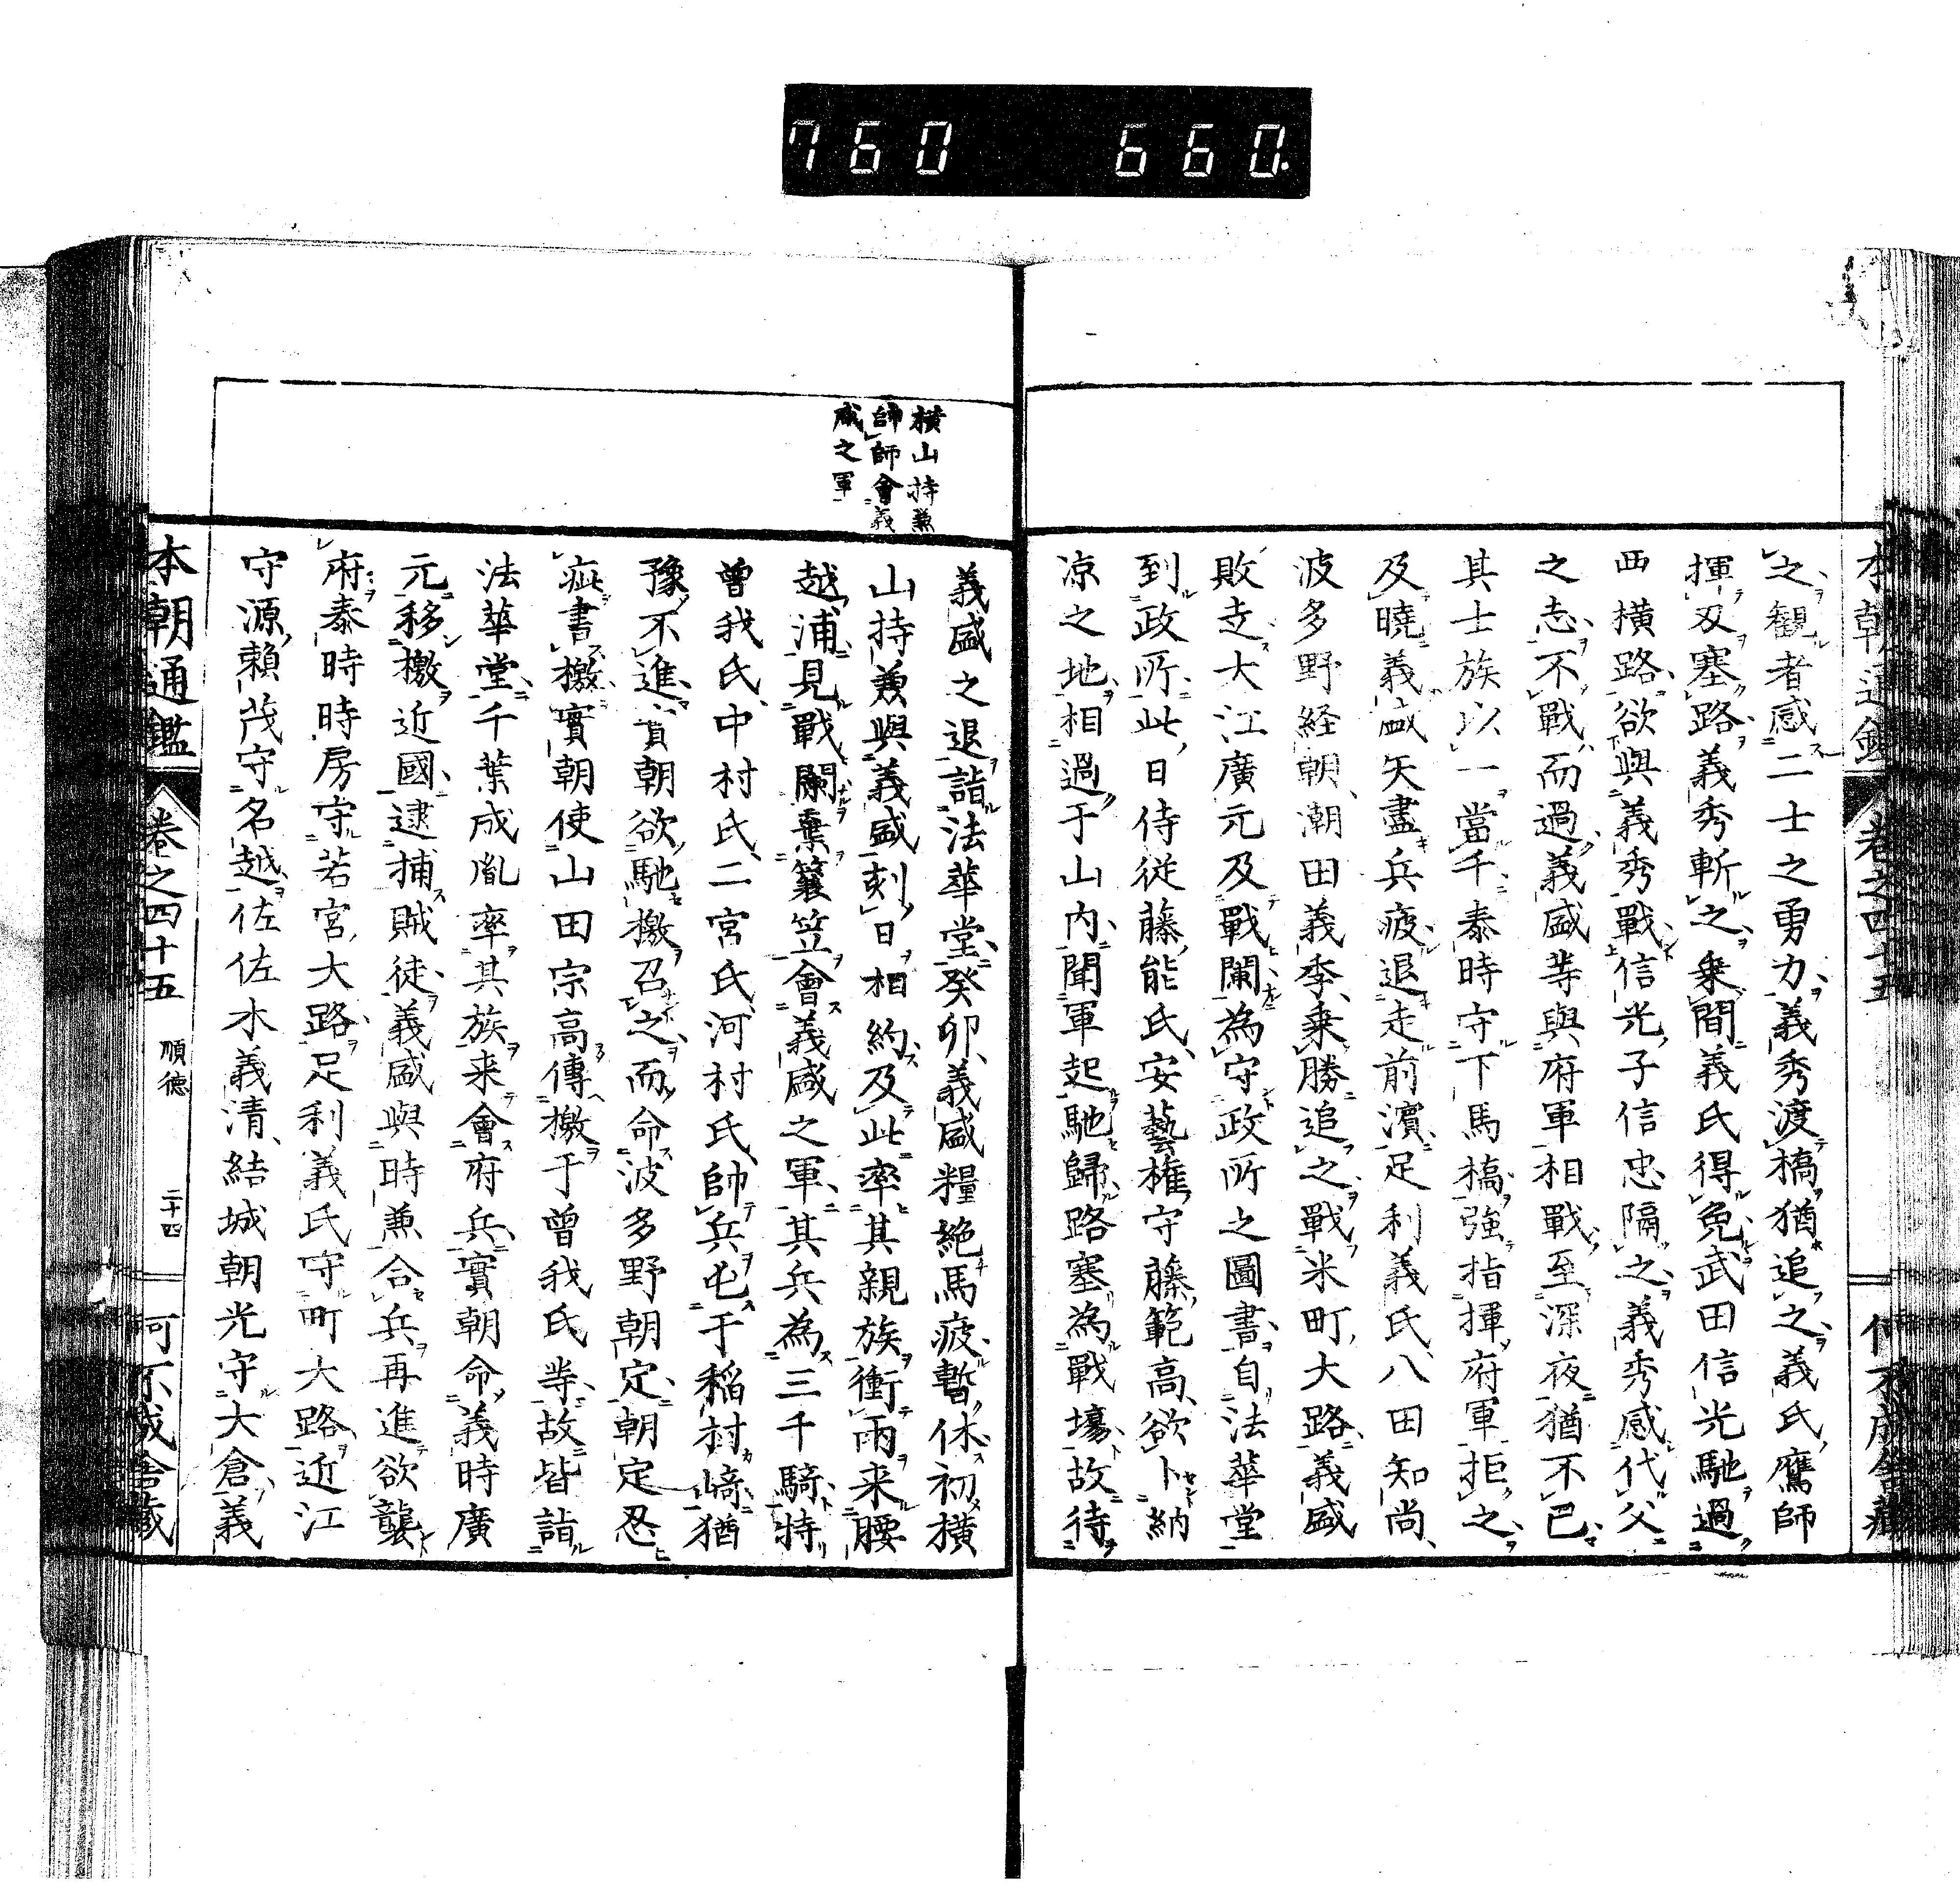 760 660.
本朝通鑑 卷之四十五
之觀者感二士之勇力義秀渡橋猶追之義氏鷹師
揮刄塞路義秀斬之乘間義氏得免武田信光馳過
西橫路欲與義秀戰信光子信忠隔之義秀感代父
之志不戰而過義盛等與府軍相戰至深夜猶不已
其士族以一當千泰時守下馬橋強指揮府軍拒之
及曉義盛矢盡兵疲退走前濱足利義氏八田知尚
波多野経朝潮田義季乘勝追之戰米町大路義盛
敗走大江廣元及戰闌為守政所之圖書自法華堂
到政所此日侍從藤能氏安藝権守藤範高欲卜納
凉之地相過于山內聞軍起馳歸路塞為戰塲故待
橫山持兼
帥師會義
盛之軍
義盛之退詣法華堂癸卯義盛糧絶馬疲暫休初橫
山持兼與義盛刻日相約及此率其親族衝雨来腰
越浦見戰闌棄簑笠會義盛之軍其兵為三千騎特
曽我氏中村氏二宮氏河村氏帥兵屯于稲村﨑猶
豫不進實朝欲馳檄召之而命波多野朝定朝定忍
疵書檄實朝使山田宗高傳檄于曽我氏等故皆詣
法華堂千葉成胤率其族来會府兵實朝命義時廣
元移檄近國逮捕賊徒義盛與時兼合兵再進欲襲
府泰時時房守若宮大路足利義氏守町大路近江
守源賴茂守名越佐佐木義清結城朝光守大倉義
本朝通鑑 卷之四十五 順德 二十四 可不成舎蔵